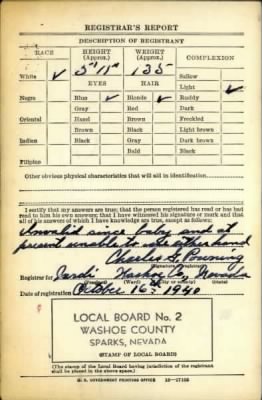 REGISTRAR'S REPORT
DESCRIPTION OF REGISTRANT
RACE HEIGHT (Approx.) WEIGHT (Approx.) COMPLEXION
White ✓ 5' 11" 135 Sallow
EYES HAIR Light ✓
Negro Blue ✓ Blonde ✓ Ruddy
Gray Red Dark
Oriental Hazel Brown Freckled
Brown Black Light brown
Indian Black Gray Dark brown
Bald Black
Filipino
Other obvious physical characteristics that will aid in identification
I certify that my answers are true; that the person registered has read or has had
read to him his own answers; that I have witnessed his signature or mark and that
all of his answers of which I have knowledge are true, except as follows:
Invalid since baby and at
present unable to use either hand
Charles G.
Registrar for Washoe Co, Nevada
(Precinct) (Ward) (City or county) (State)
Date of registration October 16th 1940
LOCAL BOARD No. 2
WASHOE COUNTY
SPARKS, NEVADA
(STAMP OF LOCAL BOARD)
(The stamp of the Local Board having jurisdiction of the registrant
shall be placed in the above space.)
U. S. GOVERNMENT PRINTING OFFICE